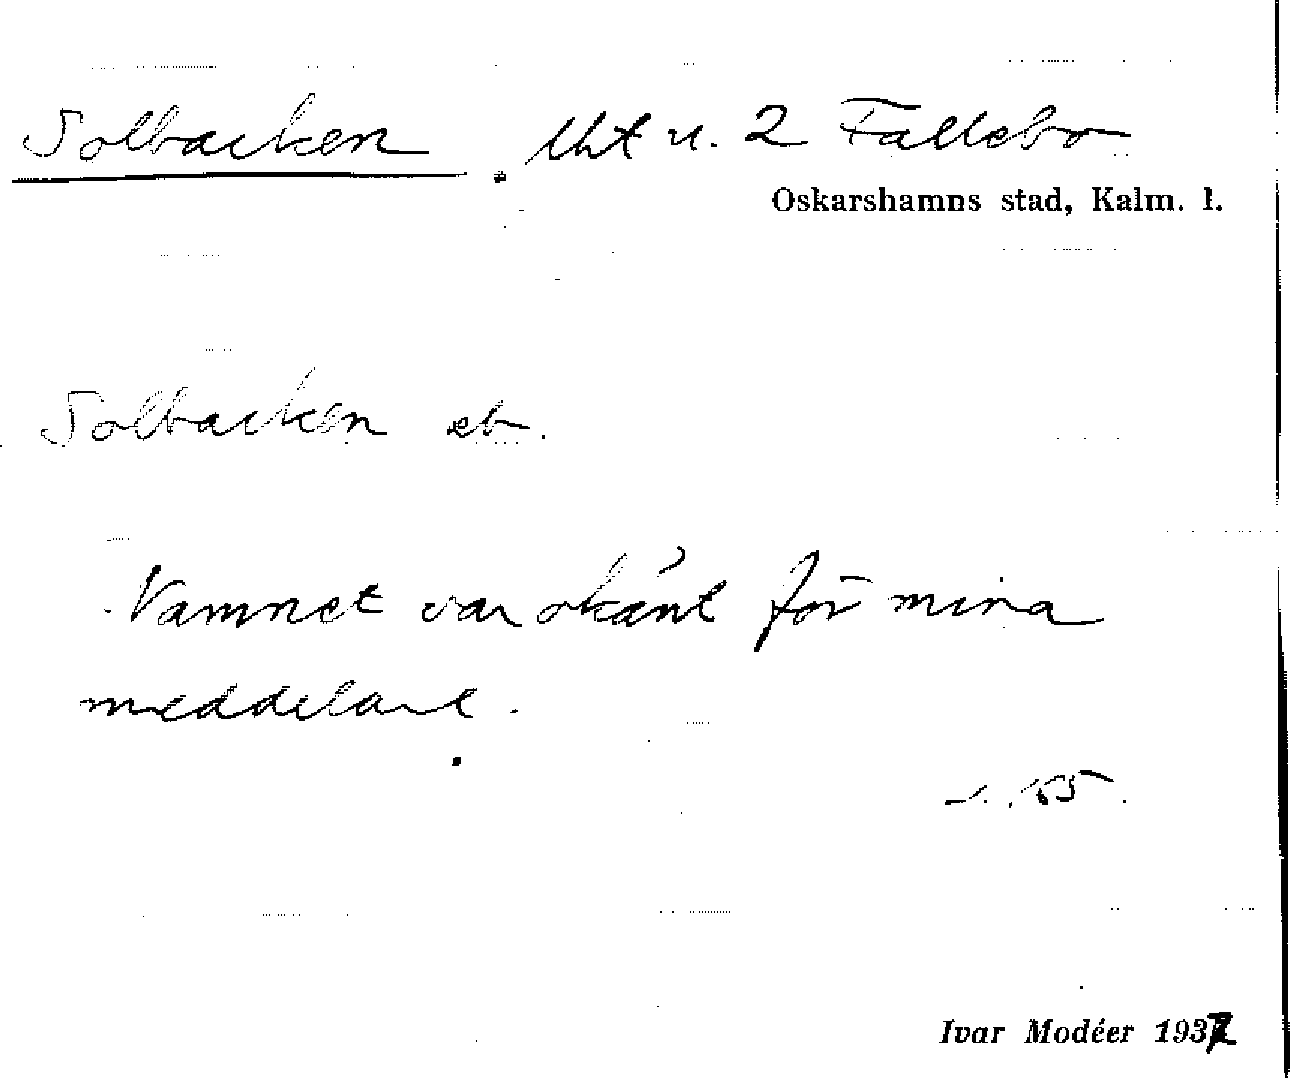 Solbacken. lht u. 2 Fallebo
Oskarshamns stad, Kalm. l.
Solbacken eb.
Namnet var okänt för mina
meddelare.
s. 155.
Ivar Modéer 1937